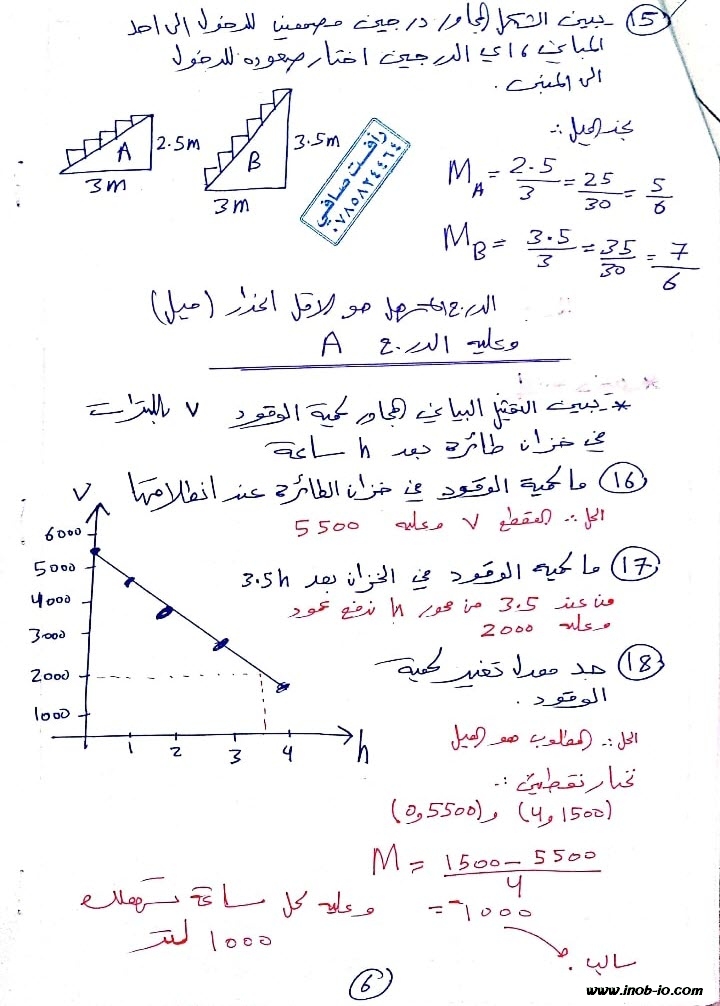 (15) يبين الشكل المجاور درجين مصممين للدخول الى احد
المباني، اي الدرجين اختار صعوده للدخول
الى المبنى.
نجد الميل :.
M_A = 2.5/3 = 25/30 = 5/6
M_B = 3.5/3 = 35/30 = 7/6
A
2.5m
3m
B
3.5m
3m
رافت صافي
٠٧٨٥٨٢٤٤٦٤
الدرج الاسهل هو الاقل انحدار (ميل)
وعليه الدرج A
* يبين التمثيل البياني المجاور كمية الوقود V باللترات
في خزان طائرة بعد h ساعة
(16) ما كمية الوقود في خزان الطائرة عند انطلاقها
الحل :. المقطع V وعليه 5500
(17) ما كمية الوقود في الخزان بعد 3.5h
من عند 3.5 من محور h نرفع عمود
وعليه 2000
(18) جد معدل تغير كمية
الوقود.
الحل :. المطلوب هو الميل
نختار نقطتين :.
(4,1500) و (0,5500)
M = 1500 - 5500 / 4
= -1000
سالب.
وعليه كل ساعة تستهلك
1000 لتر
V
6000
5000
4000
3000
2000
1000
1 2 3 4 h
6
www.inob-jo.com